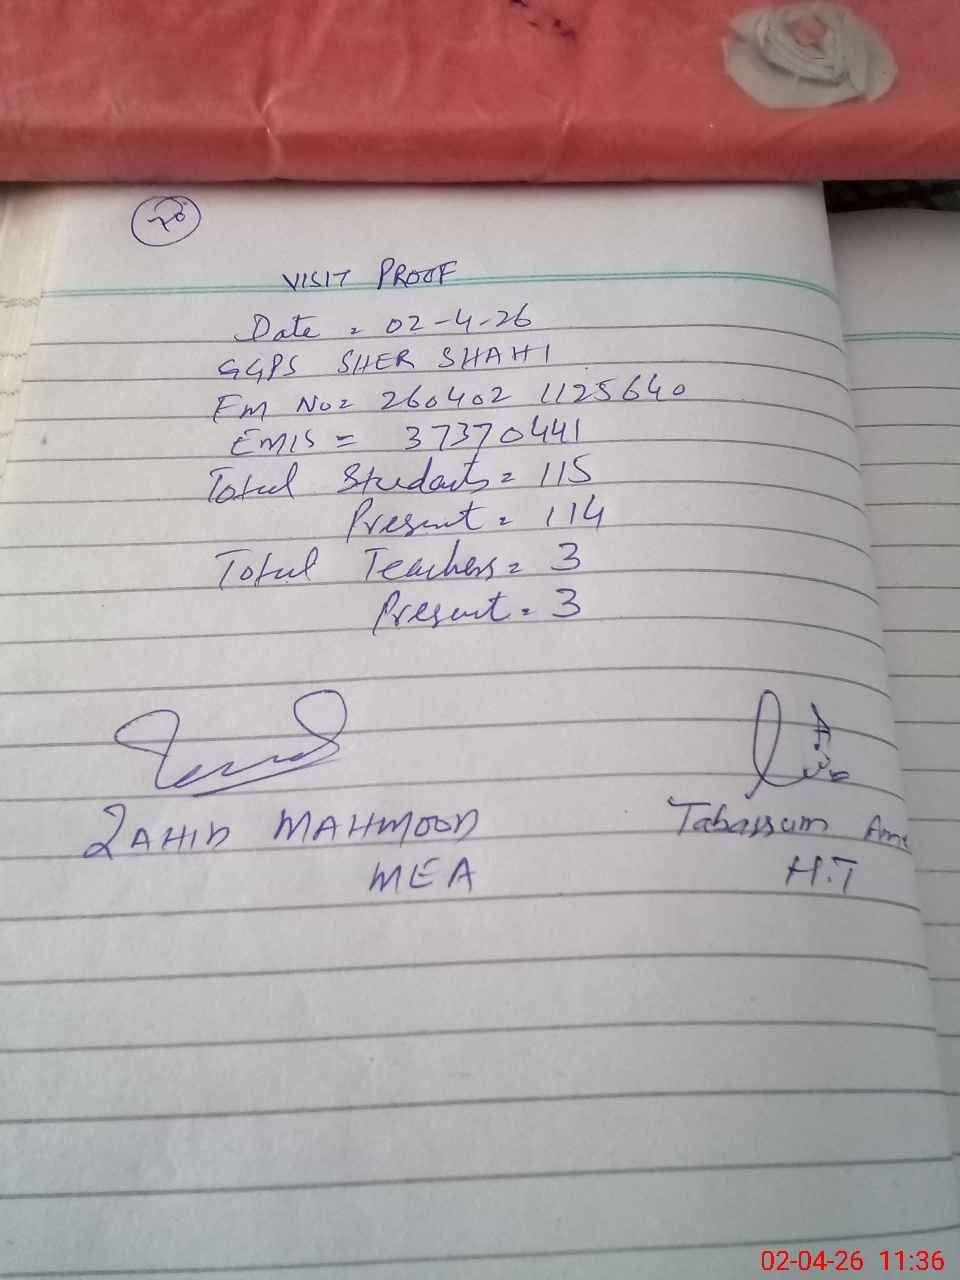 VISIT PROOF
Date = 02-4-26
GGPS SHER SHAHI
Fm No= 260402 1125640
EMIS = 37370441
Total Students = 115
Present = 114
Total Teachers = 3
Present = 3
ZAHID MAHMOOD
MEA
Tabassum
H.T
02-04-26 11:36